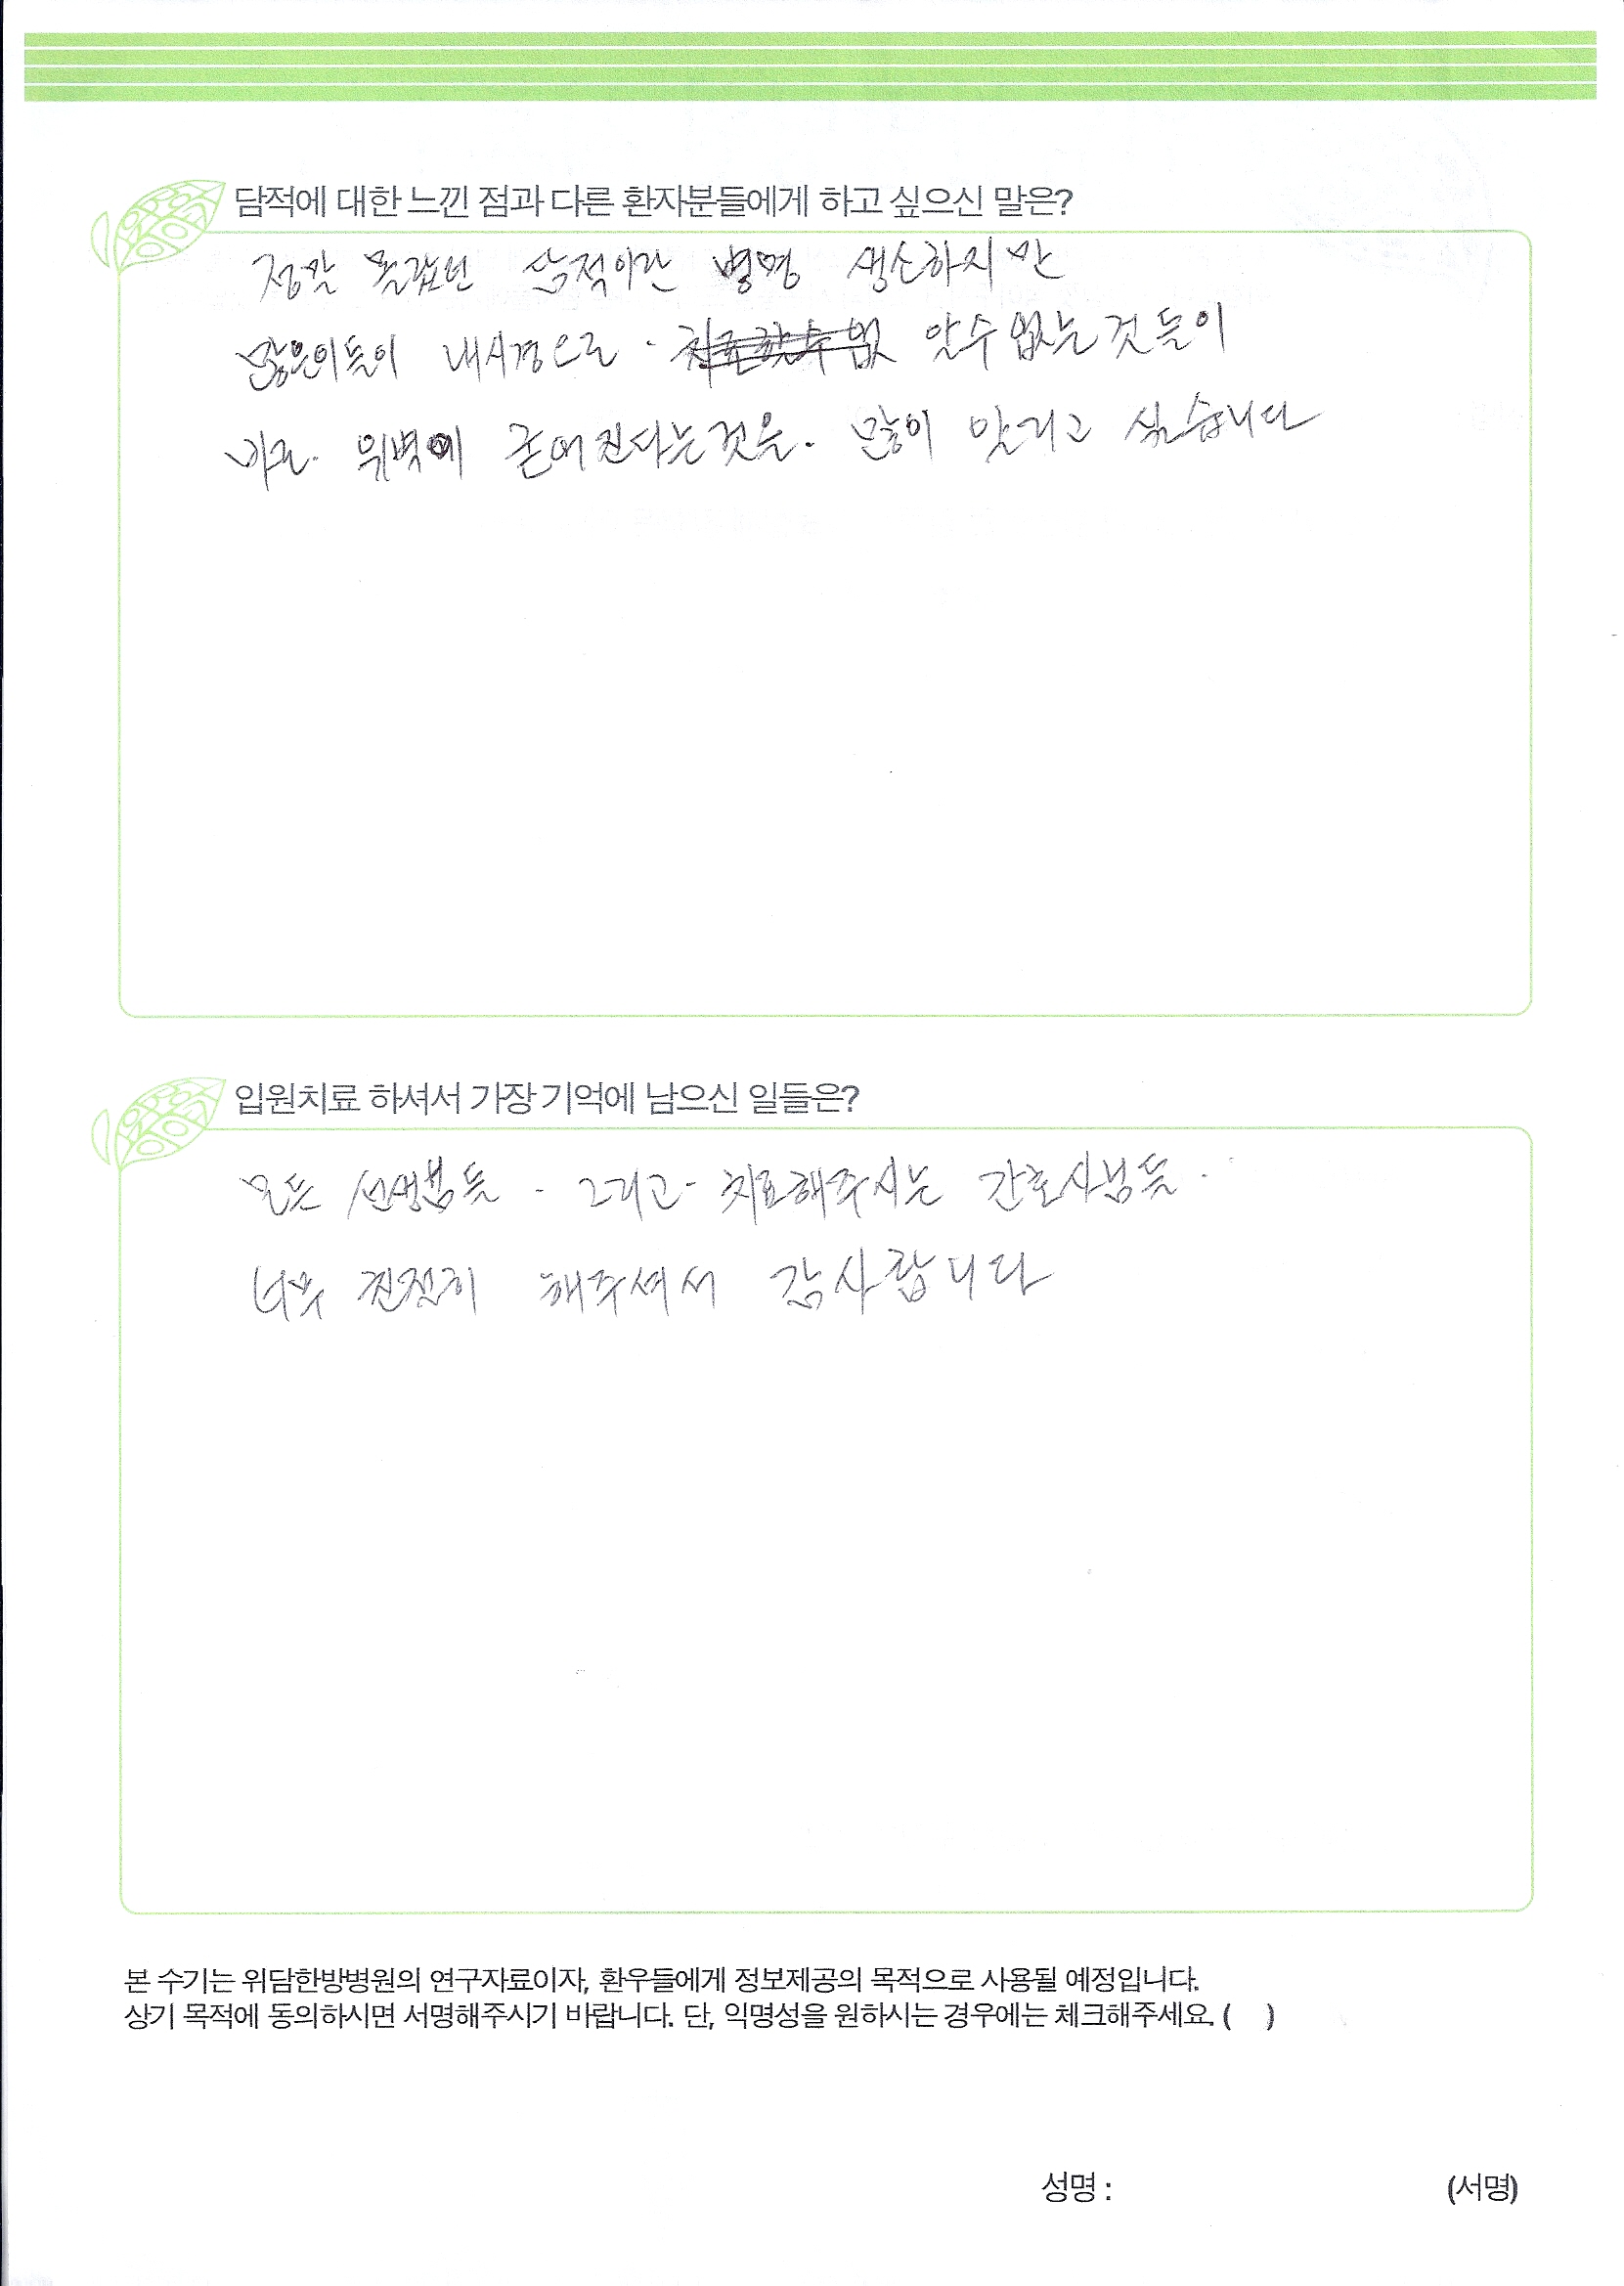 담적에 대한 느낀 점과 다른 환자분들에게 하고 싶으신 말은?
정말 몰랐던 담적이란 병명 생소하지만
많은이들이 내시경으로 · 알수없는것들이
바로. 위벽에 굳어진다는것을. 많이 알리고 싶습니다
입원치료 하셔서 가장 기억에 남으신 일들은?
모든 선생님들 - 그리고 - 치료해주시는 간호사님들 ·
너무 친절히 해주셔서 감사합니다
본 수기는 위담한방병원의 연구자료이자, 환우들에게 정보제공의 목적으로 사용될 예정입니다.
상기 목적에 동의하시면 서명해주시기 바랍니다. 단, 익명성을 원하시는 경우에는 체크해주세요. ( )
성명 : (서명)